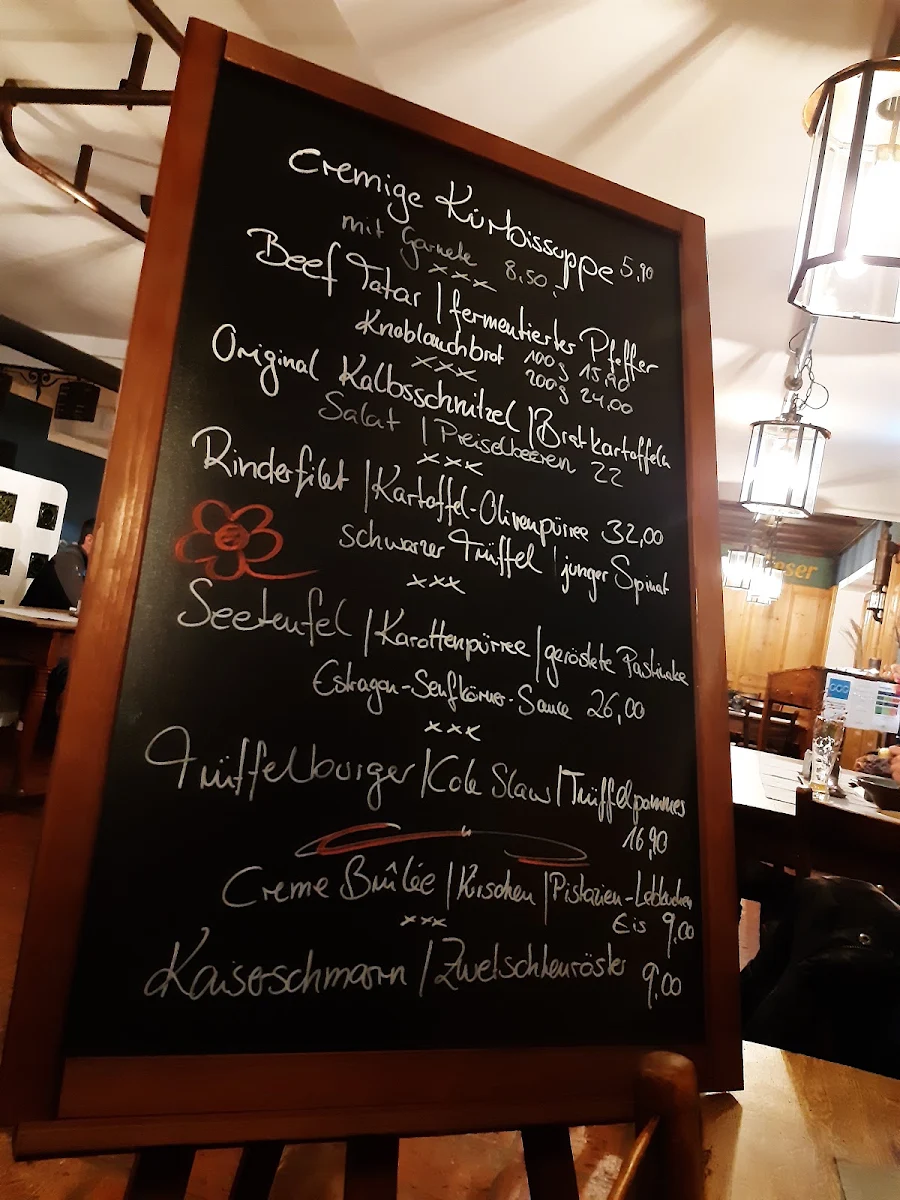 Cremige Kürbissuppe 5,90
mit Garnele 8,50,-
xxx
Beef Tatar | fermentierter Pfeffer
Knoblauchbrot 100g 15,90
200g 24,00
xxx
Original Kalbsschnitzel | Bratkartoffeln
Salat | Preiselbeeren 22
xxx
Rinderfilet | Kartoffel-Olivenpürree 32,00
schwarzer Trüffel | junger Spinat
xxx
Seeteufel | Karottenpürree | geröstete Pastinake
Estragon-Senfkörner-Sauce 26,00
xxx
Trüffelburger | Cole Slaw | Trüffelpommes
16,90
Creme Brûlée | Kirschen | Pistazien-Lebkuchen
Eis 9,00
xxx
Kaiserschmarrn | Zwetschkenröster 9,00